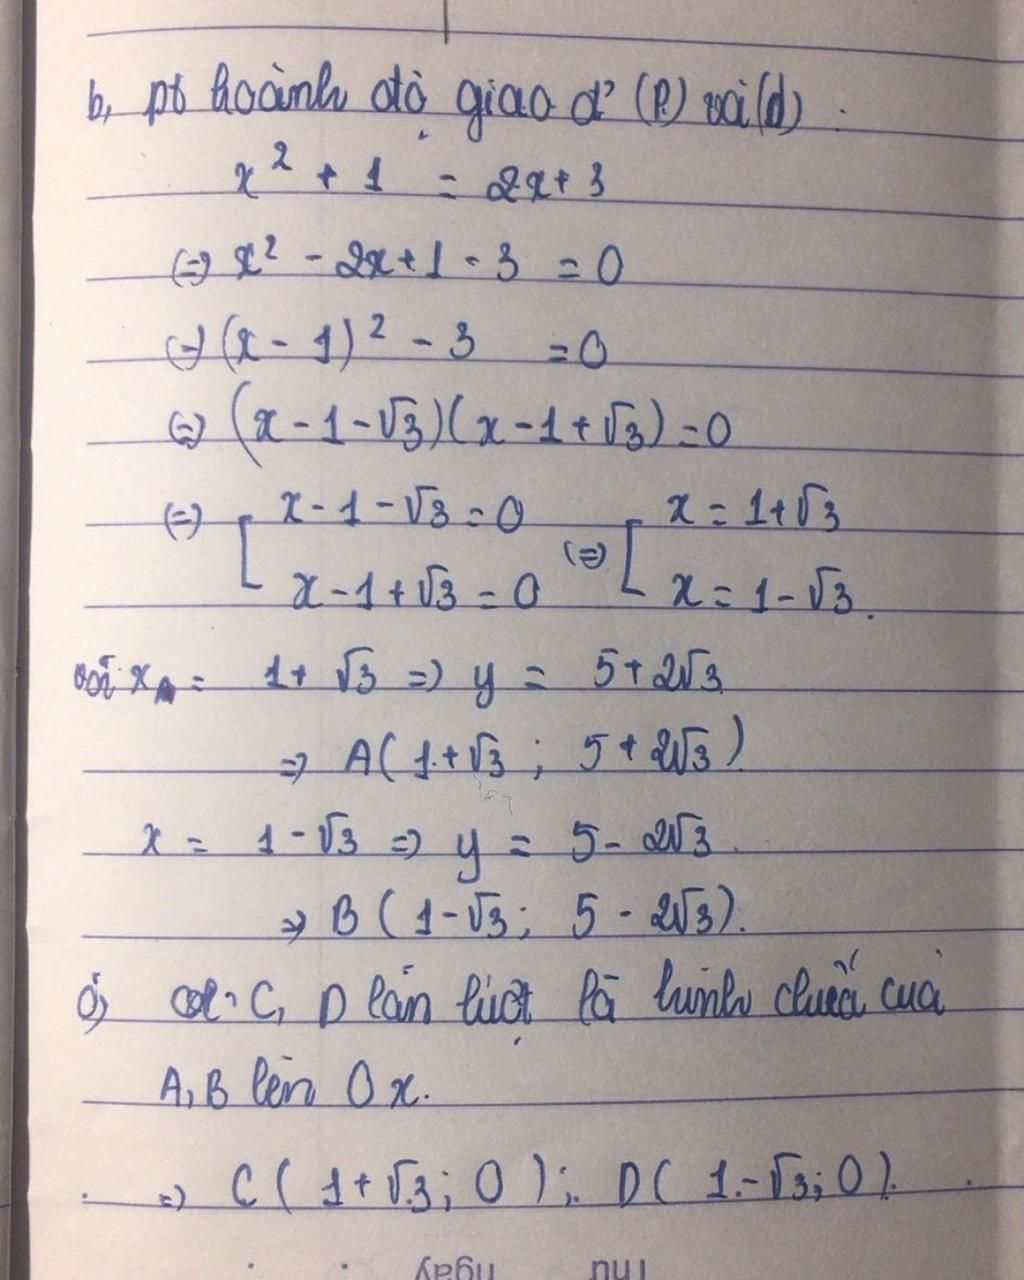 b, pt hoành độ giao đ' (P) với (d)
x² + 1 = 2x + 3
(=) x² - 2x + 1 - 3 = 0
(=) (x - 1)² - 3 = 0
(=) (x - 1 - √3)(x - 1 + √3) = 0
(=) [ x - 1 - √3 = 0 (=) [ x = 1 + √3
x - 1 + √3 = 0 x = 1 - √3.
với x_A = 1 + √3 => y = 5 + 2√3
=> A( 1 + √3 ; 5 + 2√3 )
x = 1 - √3 => y = 5 - 2√3.
=> B ( 1 - √3 ; 5 - 2√3).
C, D lần lượt là hình chiếu của
A, B lên Ox.
=> C ( 1 + √3 ; 0 ) ; D( 1 - √3 ; 0 ).
Thu ngay